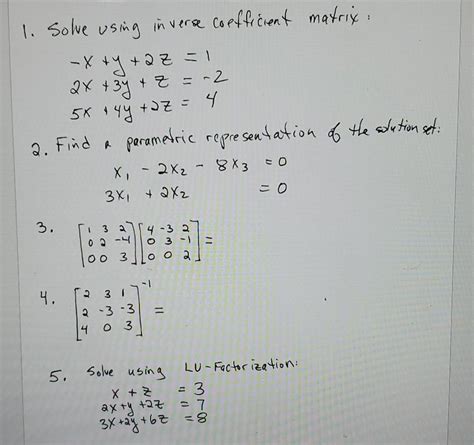 1. Solve using inverse coefficient matrix:
-x + y + 2z = 1
2x + 3y + z = -2
5x + 4y + 2z = 4
2. Find a parametric representation of the solution set:
x₁ - 2x₂ - 8x₃ = 0
3x₁ + 2x₂ = 0
3. [1 3 2] [4 -3 2]
[0 2 -4] [0 3 -1] =
[0 0 3] [0 0 2]
4. [2 3 1]⁻¹
[2 -3 -3] =
[4 0 3]
5. Solve using LU-Factorization:
x + z = 3
2x + y + 2z = 7
3x + 2y + 6z = 8